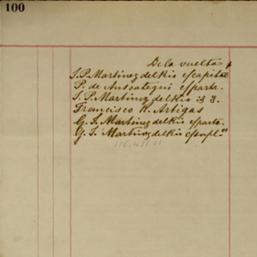 100
De la vuelta
J. P. Martinez del Rio c/ capital
P. de Ansoategui c/ parte.
J. P. Martinez del Rio
Francisco N. Artigas
G. F. Martinez del Rio c/ parte.
G. F. Martinez del Rio